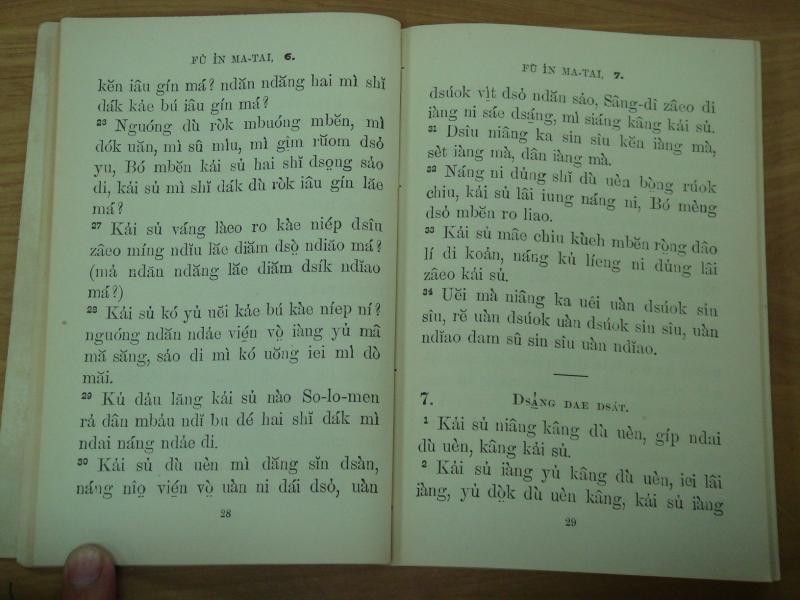 FŪ ÌN MA-TAI, 6.
kĕn iâu gín má? ndăn ndăng hai mì shĭ
dák kảe bú iâu gín má?
26 Nguóng dù ròk mbuóng mbĕn, mì
dók uăn, mì sû mìu, mì gìm rŭom dsỏ
yu, Bó mbĕn kải sủ hai shĭ dsọng sáo
di, kải sủ mì shĭ dák dù ròk iâu gín lăe
má?
27 Kải sủ váng làeo ro kàe niép dsîu
zâeo míng ndĭu lăe diăm dsò̤ ndiăo má?
(mả ndăn ndăng lăe diăm dsík ndĭao
má?)
28 Kải sủ kó yủ uĕi kảe bú kàe níep ní?
nguóng ndăn ndảe vię́n vò̤ iàng yủ mâ
mă săng, sáo di mì kó uŏng iei mì dò
măi.
29 Kủ dảu lăng kải sủ nào So-lo-men
rả dân mbảu ndĭ bu dé hai shĭ dák mì
ndai náng ndảe di.
30 Kải sủ dù uèn mì dăng sĭn dsàn,
náng nîo̤ vię́n vò̤ uàn ni dái dsỏ, uàn
28
FŪ ÌN MA-TAI, 7.
dsúok vì̤t dsỏ ndăn sáo, Sâng-dî zâeo di
ìàng ni sáe dsá̤ng, mì siáng kâng kải sủ.
31 Dsîu niâng ka sin sîu kĕn ìàng mà,
sèt ìàng mà, dân ìàng mà.
32 Náng ni dủng shĭ dù uèn bò̤ng rúok
chiu, kải sủ lâi iung náng ni, Bó mèng
dsỏ mbĕn ro liao.
33 Kải sủ mâe chiu kùeh mbĕn rò̤ng dâo
lí di koản, náng kủ líeng ni dủng lâi
zâeo kải sủ.
34 Uĕi mà niâng ka uéi uàn dsúok sin
sîu, rĕ uàn dsúok uàn dsúok sin sîu, uàn
ndĭao dam sû sin sîu uàn ndĭao.
7. DSẢ̤NG DAE DSÁT.
1 Kải sủ niâng kâng dù uèn, gíp ndai
dù uèn, kâng kải sủ.
2 Kải sủ ìàng yủ kâng dù uèn, iei lâi
ìàng, yủ dò̤k dù uèn kâng, kải sủ ìàng
29